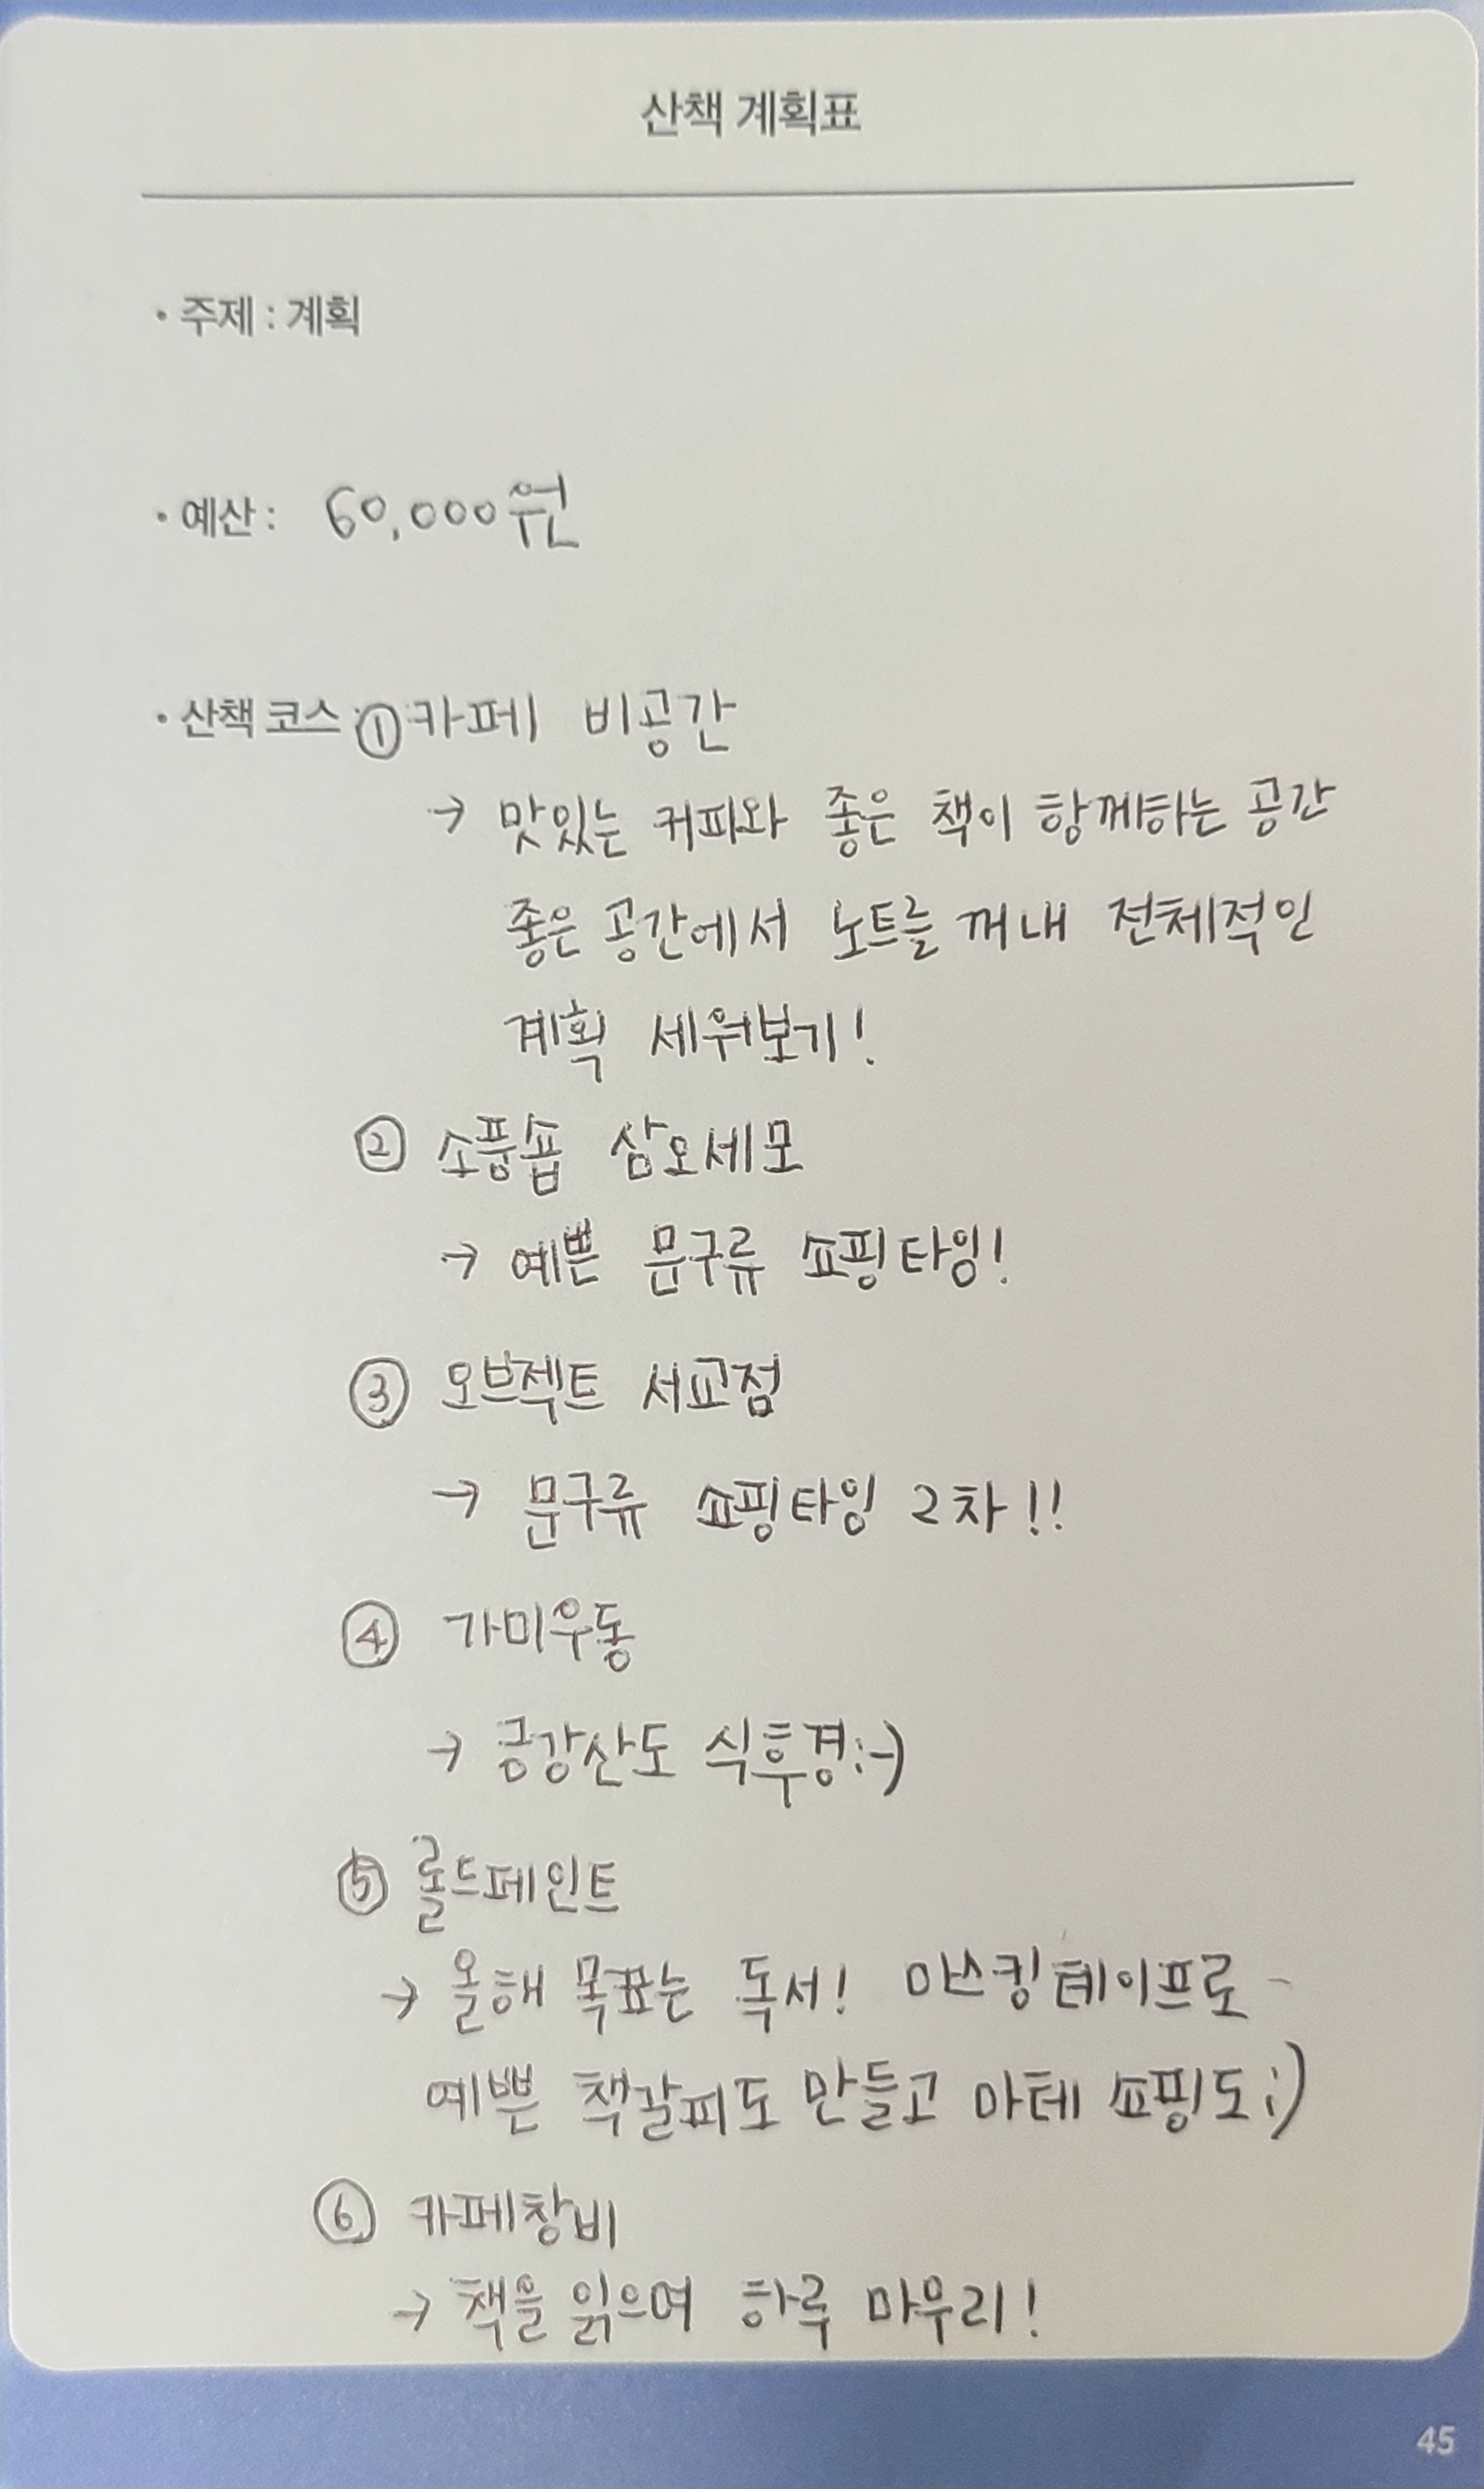 산책 계획표
• 주제 : 계획
• 예산 : 60,000원
• 산책 코스 : ① 카페 비공간
→ 맛있는 커피와 좋은 책이 함께하는 공간
좋은 공간에서 노트를 꺼내 전체적인
계획 세워보기!
② 소품숍 삼오세모
→ 예쁜 문구류 쇼핑타임!
③ 오브젝트 서교점
→ 문구류 쇼핑타임 2차!!
④ 가미우동
→ 금강산도 식후경:-)
⑤ 롤드페인트
→ 올해 목표는 독서! 마스킹테이프로
예쁜 책갈피도 만들고 마테 쇼핑도:)
⑥ 카페창비
→ 책을 읽으며 하루 마무리!
45